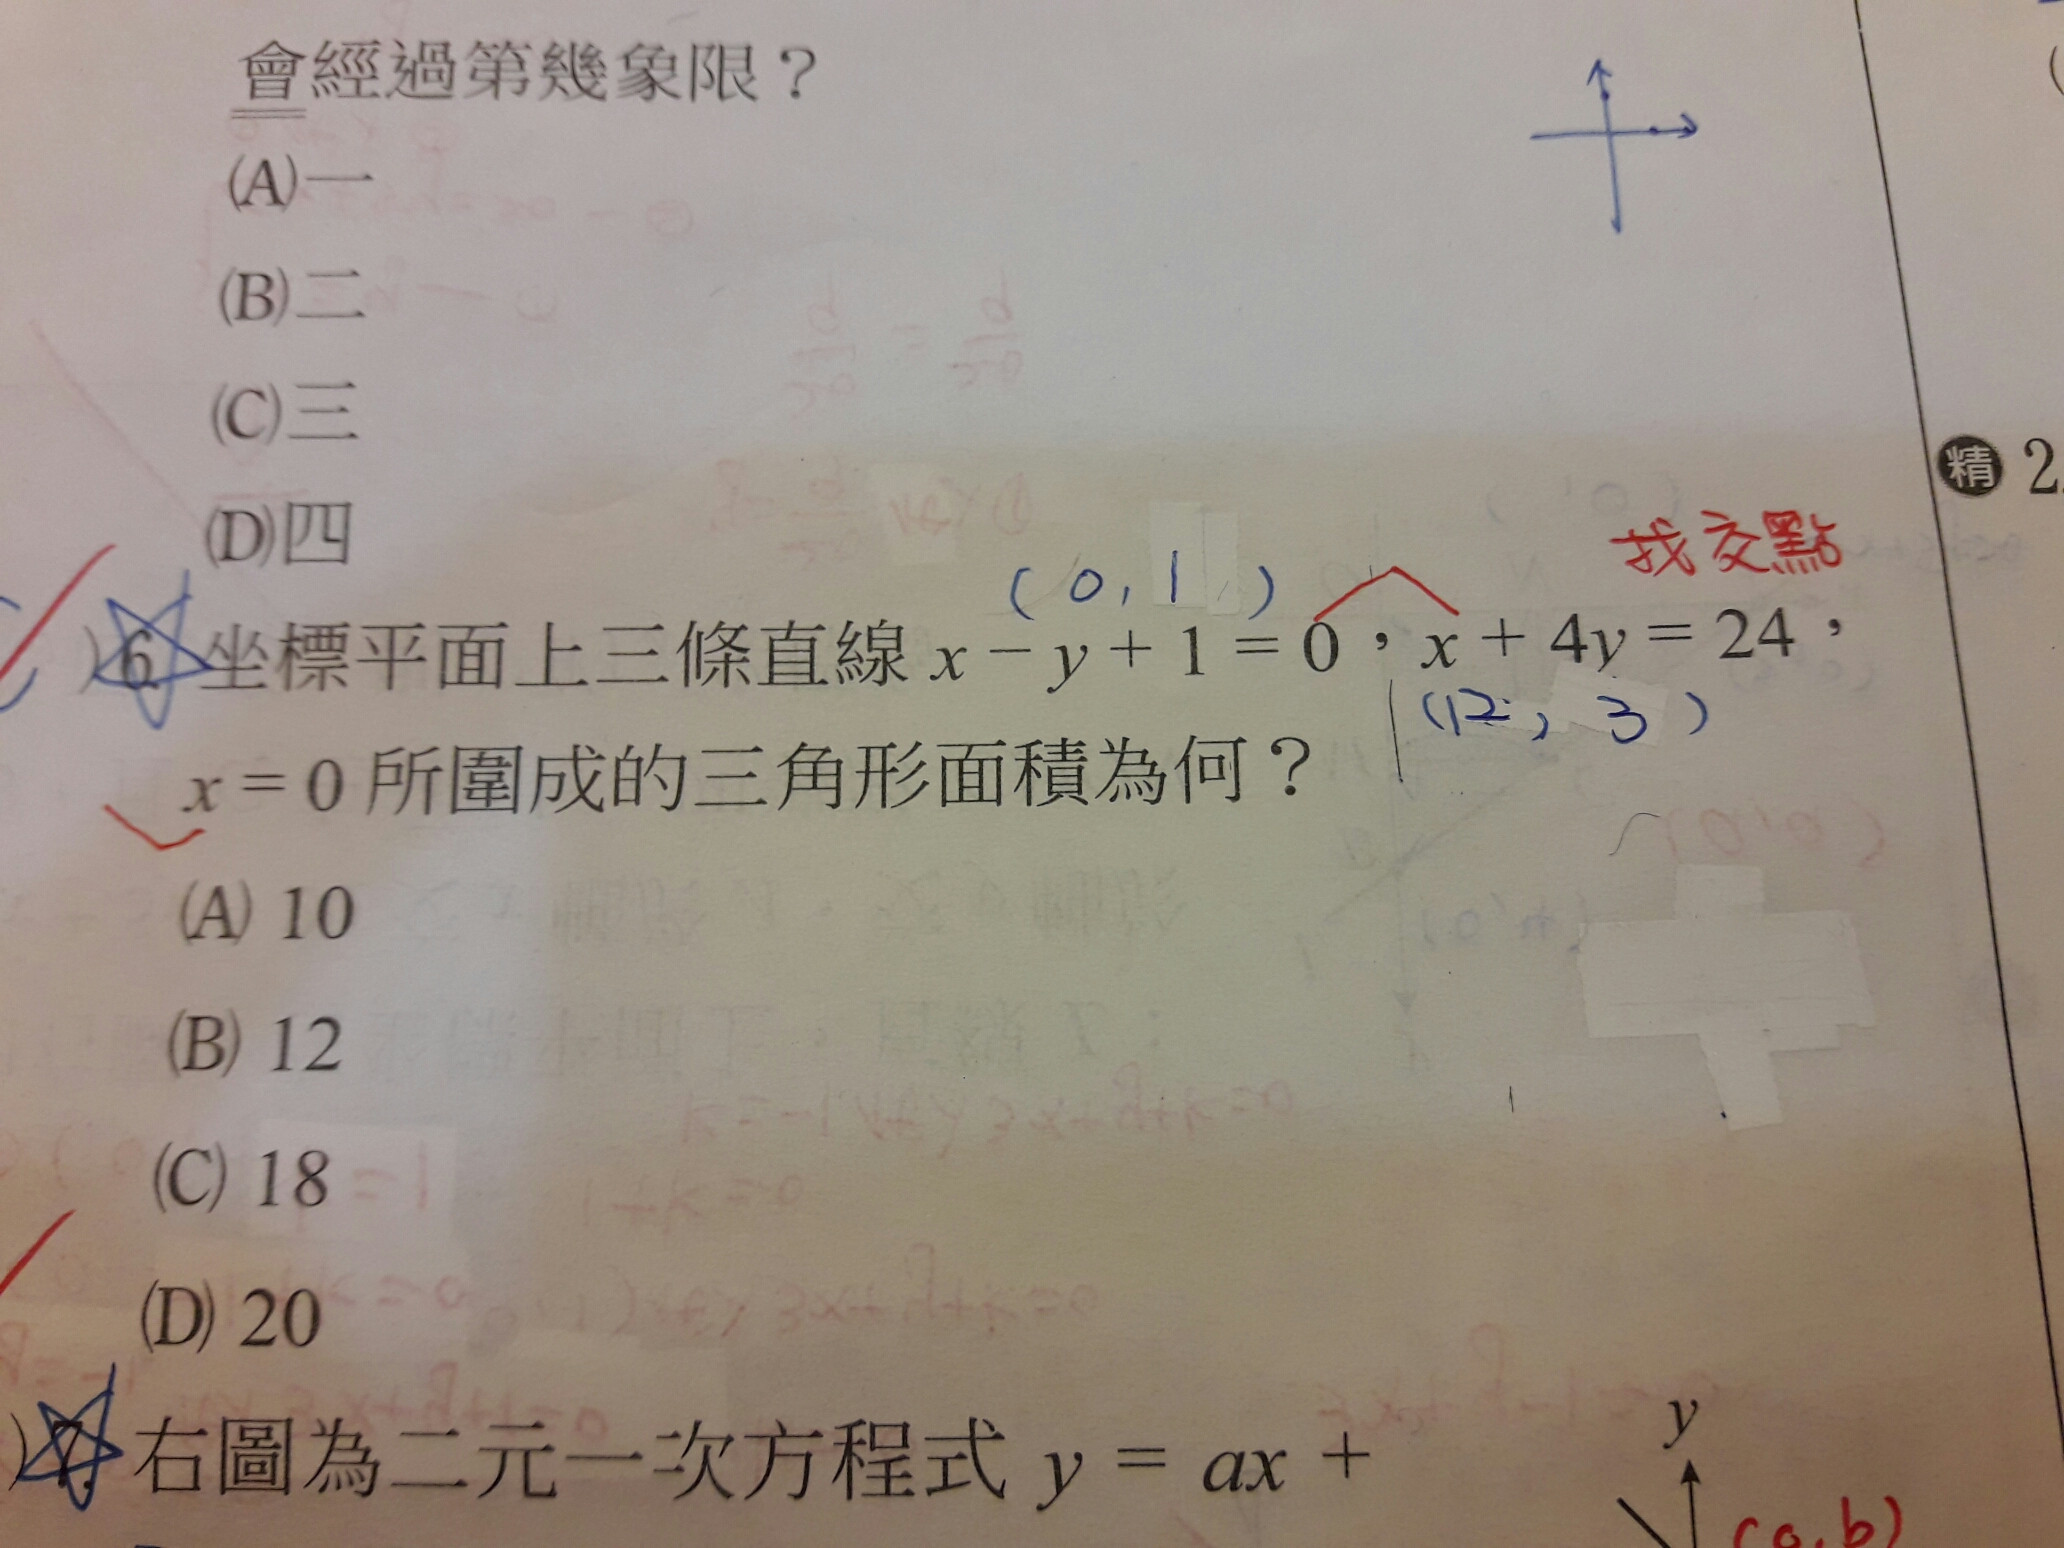 會經過第幾象限？
(A)一
(B)二
(C)三
(D)四
精 2.
找交點
( 0, 1 )
)6. 坐標平面上三條直線 x − y + 1 = 0，x + 4y = 24，
(12, 3)
x = 0 所圍成的三角形面積為何？
(A) 10
(B) 12
(C) 18
(D) 20
)7. 右圖為二元一次方程式 y = ax +
y
(a,b)